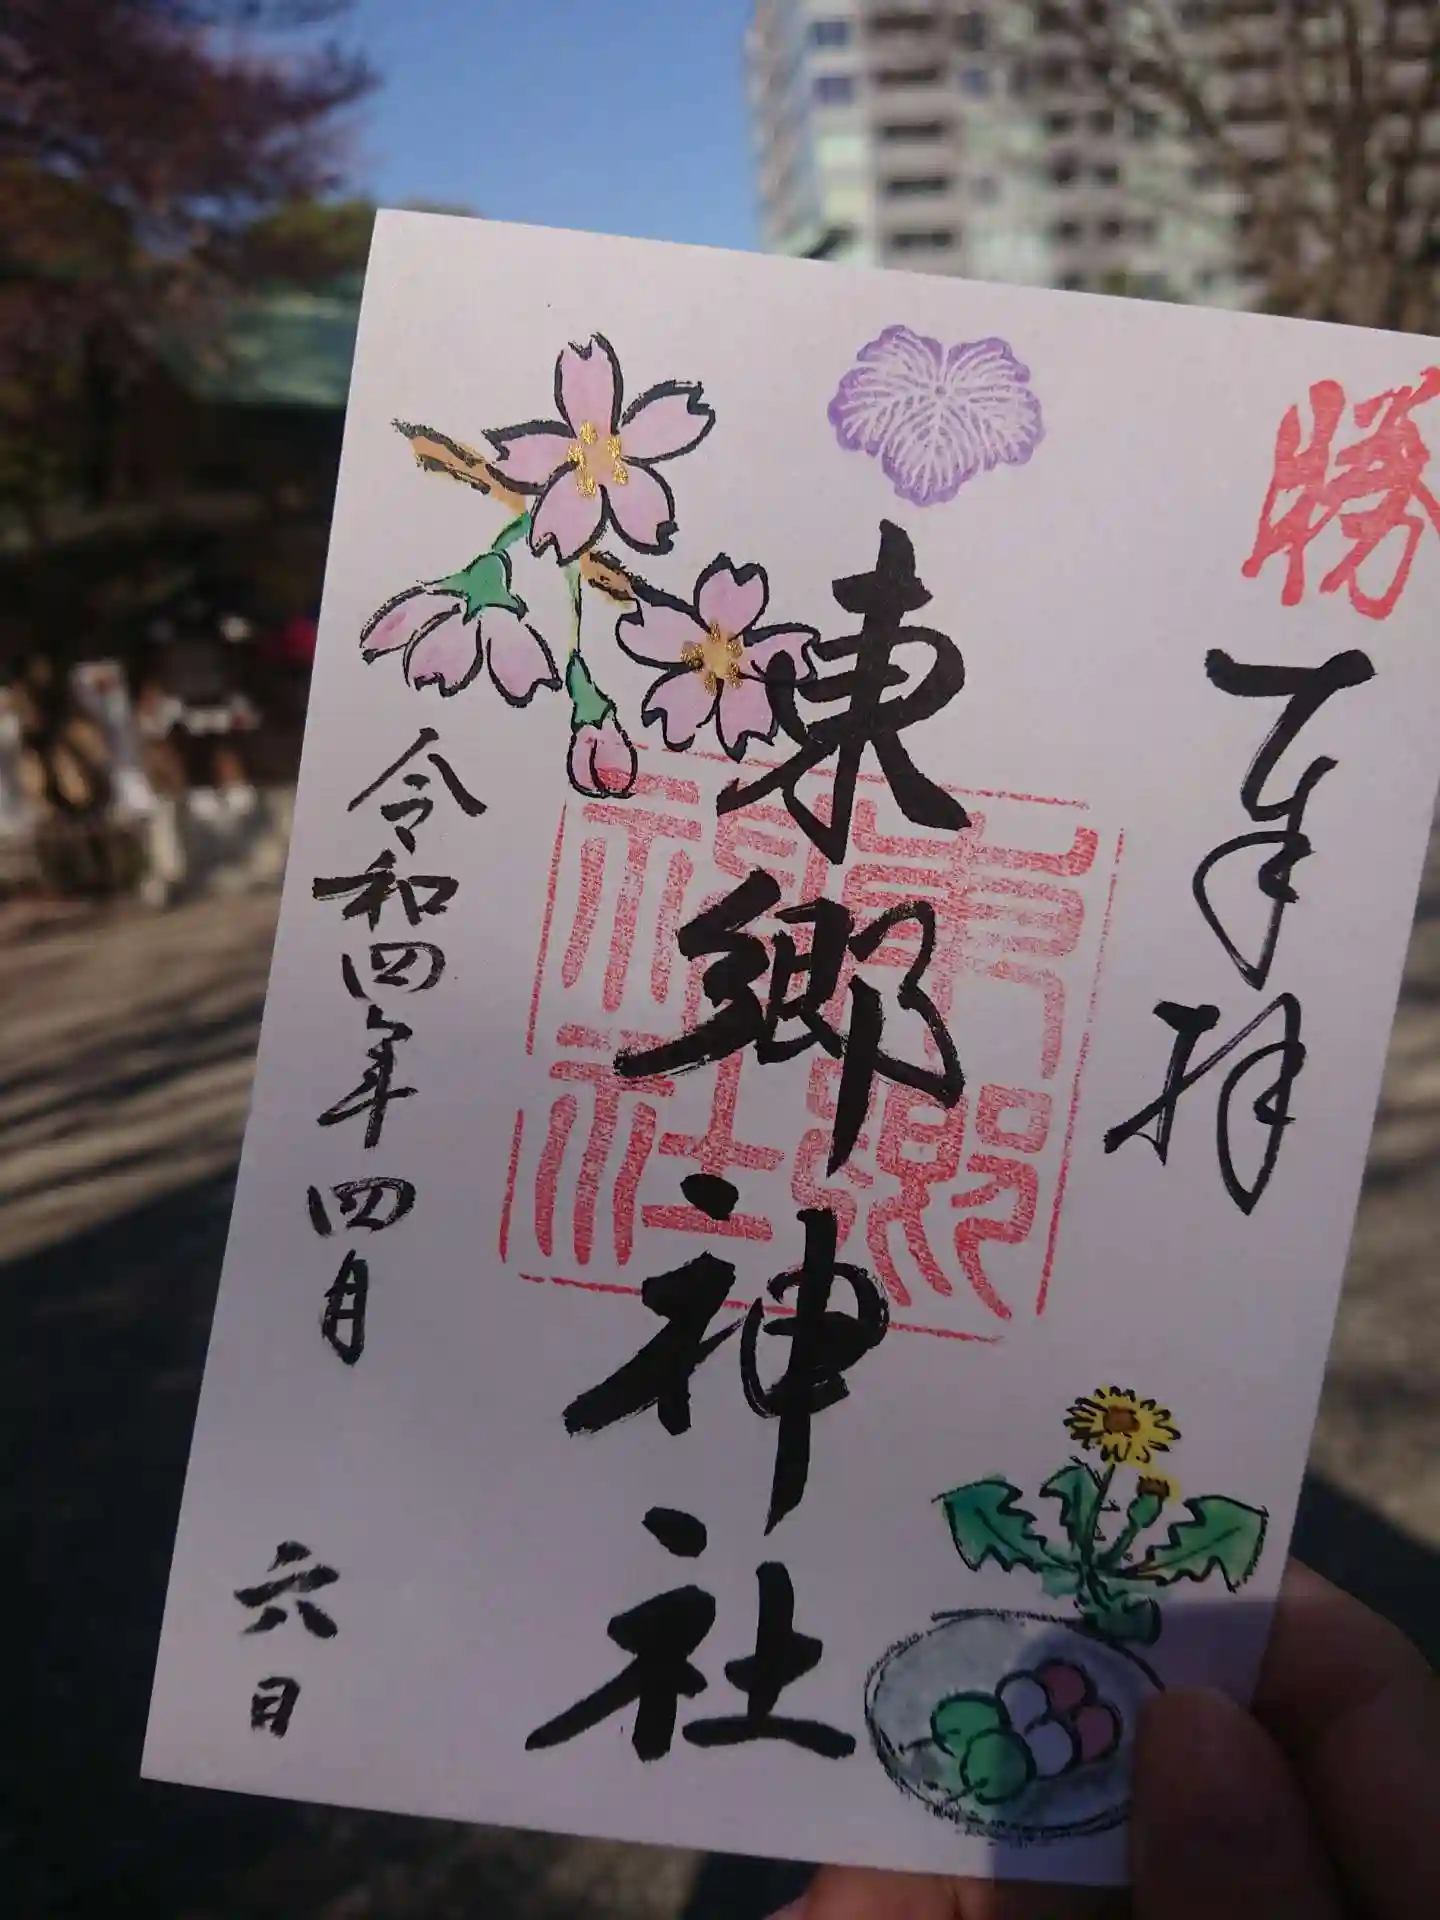 勝
奉拝
東郷神社
東郷神社
令和四年四月六日